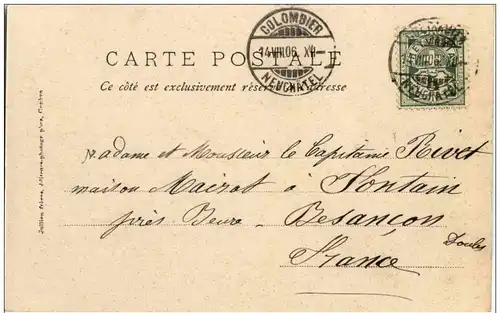 COLOMBIER
14.VIII.06. XII–
NEUCHÂTEL
CARTE POSTALE
Ce côté est exclusivement réservé à l'adresse
Madame et Monsieur le Capitaine Rivet
maison Mairot à Fontain
près Beure – Besançon
Doubs
France
Jullien frères,
Genève